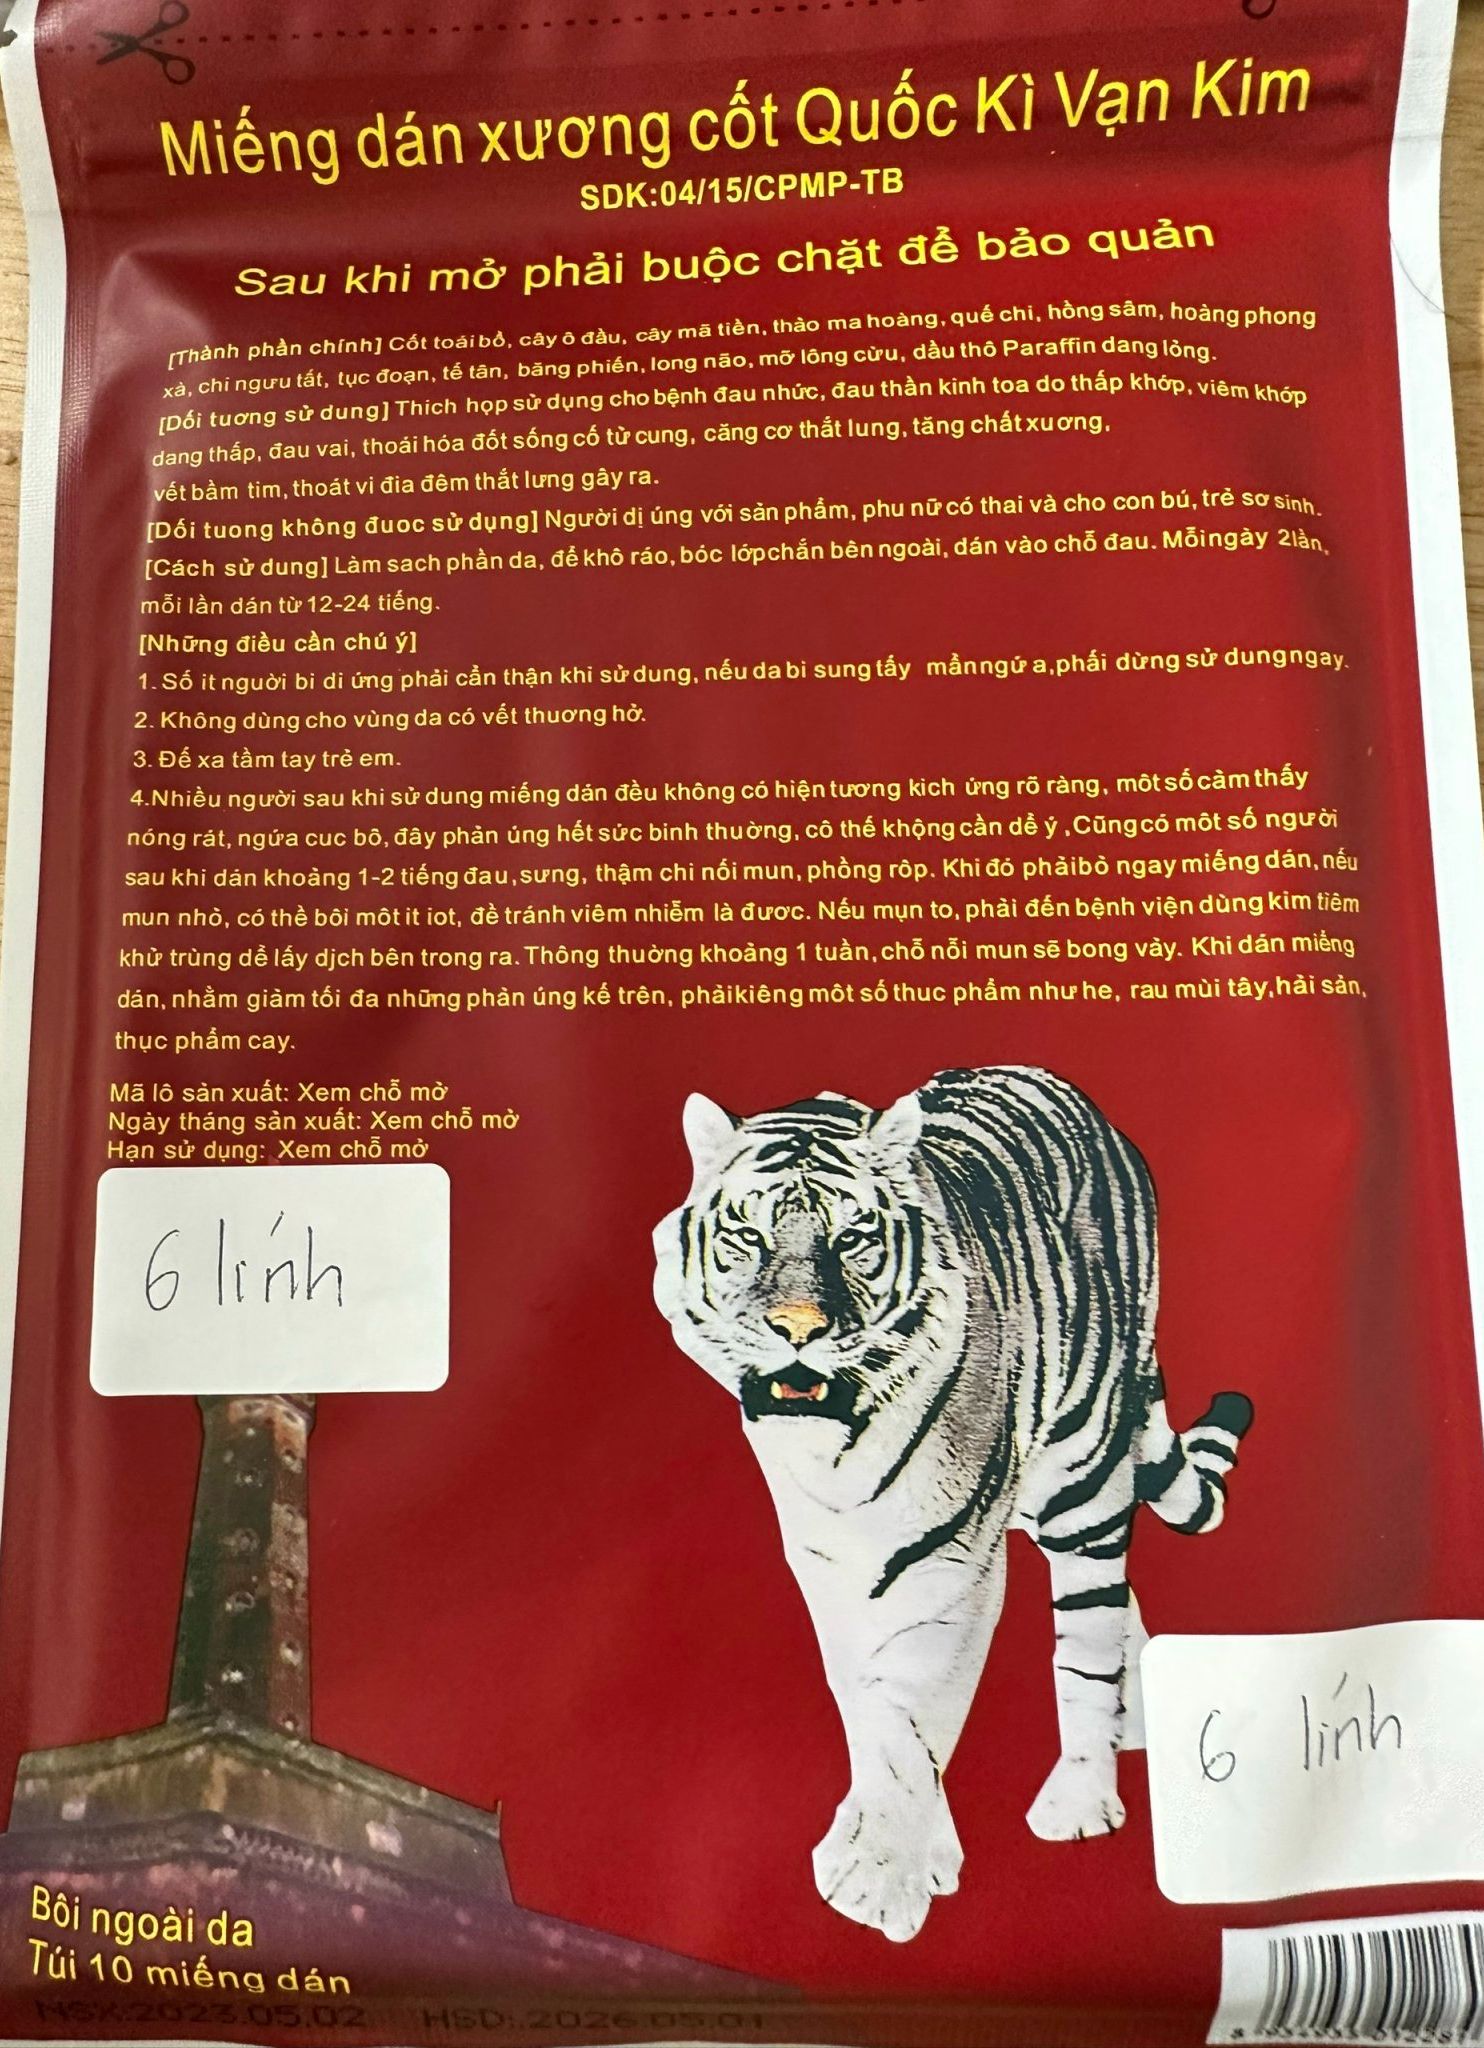 Miếng dán xương cốt Quốc Kì Vạn Kim
SDK:04/15/CPMP-TB
Sau khi mở phải buộc chặt để bảo quản
[Thành phần chính] Cốt toái bổ, cây ô đầu, cây mã tiền, thảo ma hoàng, quế chi, hồng sâm, hoàng phong
xà, chi ngưu tất, tục đoạn, tế tân, băng phiến, long não, mỡ lông cừu, dầu thô Paraffin dang lỏng.
[Dối tuơng sử dung] Thich họp sử dụng cho bệnh đau nhức, đau thần kinh toa do thấp khớp, viêm khớp
dang thấp, đau vai, thoái hóa đốt sống cố tử cung, căng cơ thắt lung, tăng chất xuơng,
vết bầm tim, thoát vi đia đêm thắt lưng gây ra.
[Dối tuong không đuoc sử dụng] Người dị úng với sản phẩm, phu nữ có thai và cho con bú, trẻ sơ sinh.
[Cách sử dung] Làm sach phần da, để khô ráo, bóc lớp chắn bên ngoài, dán vào chỗ đau. Mỗi ngày 2 lần,
mỗi lần dán từ 12-24 tiếng.
[Những điều cần chú ý]
1. Số it nguời bi di ứng phải cẩn thận khi sử dung, nếu da bi sung tấy mẩn ngứ a, phấi dừng sử dung ngay.
2. Không dùng cho vùng da có vết thuơng hở.
3. Đế xa tầm tay trẻ em.
4.Nhiều người sau khi sử dung miếng dán đều không có hiện tương kich ứng rõ ràng, môt số cảm thấy
nóng rát, ngứa cuc bô, đây phản úng hết sức binh thuờng, cô thế không cần dể ý ,Cũng có môt số người
sau khi dán khoảng 1-2 tiếng đau, sưng, thậm chi nối mun, phồng rôp. Khi đó phải bỏ ngay miếng dán, nếu
mun nhỏ, có thể bôi môt it iot, đề tránh viêm nhiễm là đươc. Nếu mụn to, phải đến bệnh viện dùng kim tiêm
khử trùng dể lấy djch bên trong ra. Thông thuờng khoảng 1 tuần, chỗ nỗi mun sẽ bong vảy. Khi dán miếng
dán, nhằm giảm tối đa những phản úng kế trên, phải kiêng môt số thuc phẩm như he, rau mùi tây, hải sản,
thục phẩm cay.
Mã lô sản xuất: Xem chỗ mở
Ngày tháng sản xuất: Xem chỗ mở
Hạn sử dụng: Xem chỗ mở
6 lính
6 lính
Bôi ngoài da
Túi 10 miếng dán
NSX:2023.05.02 HSD:.2026.05.01